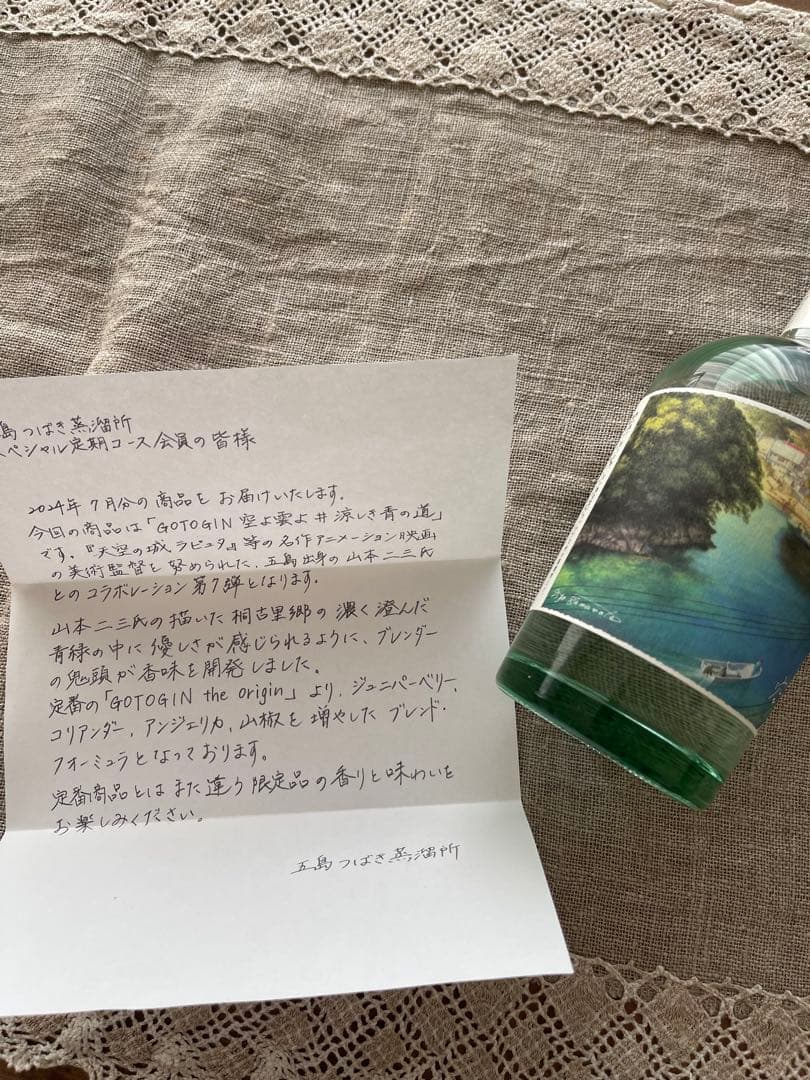 島つばき蒸溜所
スペシャル定期コース会員の皆様
2024年7月分の商品をお届けいたします。
今回の商品は「GOTOGIN 空よ雲よ # 涼しき青の道」
です。『天空の城ラピュタ』等の名作アニメーション映画
の美術監督を努められた、五島出身の山本二三氏
とのコラボレーション第7弾となります。
山本二三氏の描いた桐古里郷の濃く澄んだ
青緑の中に優しさが感じられるように、ブレンダー
の鬼頭が香味を開発しました。
定番の「GOTOGIN the origin」より、ジュニパーベリー、
コリアンダー、アンジェリカ、山椒を増やしたブレンド・
フォーミュラとなっております。
定番商品とはまた違う限定品の香りと味わいを
お楽しみください。
五島つばき蒸溜所